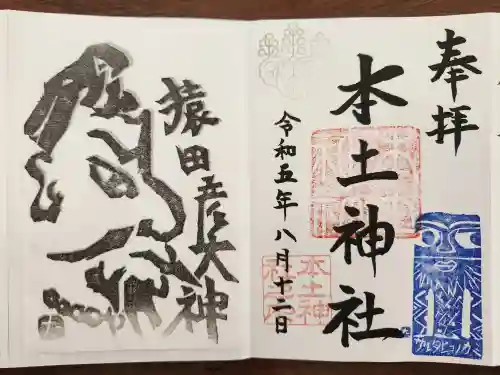 奉拝
本土神社
令和五年八月十二日
本土神
社之印
猿田彦大神
サルタヒコノカミ